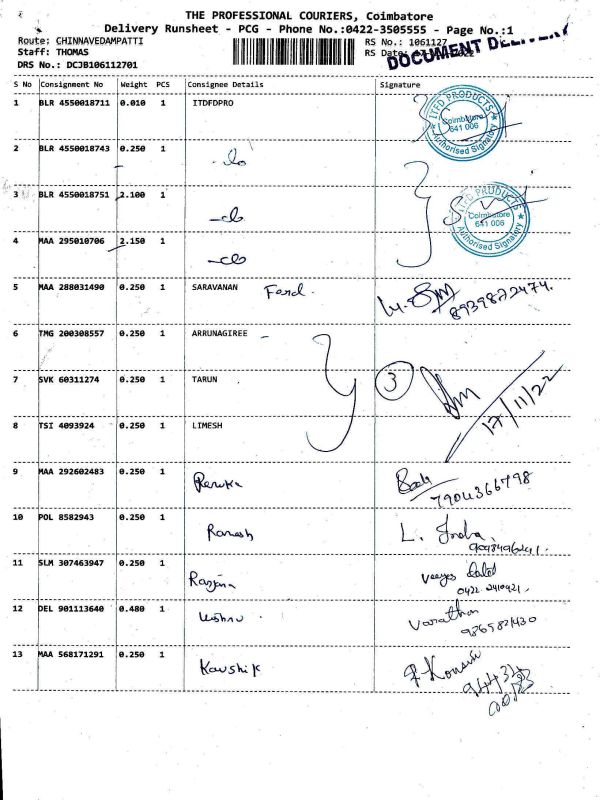 THE PROFESSIONAL COURIERS, Coimbatore
Delivery Runsheet - PCG - Phone No.:0422-3505555 - Page No.:1
Route: CHINNAVEDAMPATTI RS No.: 1061127
Staff: THOMAS RS Date:
DRS No.: DCJB106112701 DOCUMENT DELIVERY
S No Consignment No Weight PCS Consignee Details Signature
1 BLR 4550018711 0.010 1 ITDFDPRO
ITFD PRODUCTS Coimbatore 641 006 Authorised Signatory
2 BLR 4550018743 0.250 1 do
3 BLR 4550018751 2.100 1 do
ITFD PRODUCTS Coimbatore 641 006 Authorised Signatory
4 MAA 295010706 2.150 1 do
5 MAA 288031490 0.250 1 SARAVANAN Ford. 8939822474.
6 TMG 200308557 0.250 1 ARRUNAGIREE
7 SVK 60311274 0.250 1 TARUN 3 17/11/22
8 TSI 4093924 0.250 1 LIMESH
9 MAA 292602483 0.250 1 Renuka 7904366798
10 POL 8582943 0.250 1 Ramesh L. Indra
11 SLM 307463947 0.250 1 Ranjana 0422.2410421.
12 DEL 901113640 0.480 1 Vishnu Varathan
13 MAA 568171291 0.250 1 Kaushik